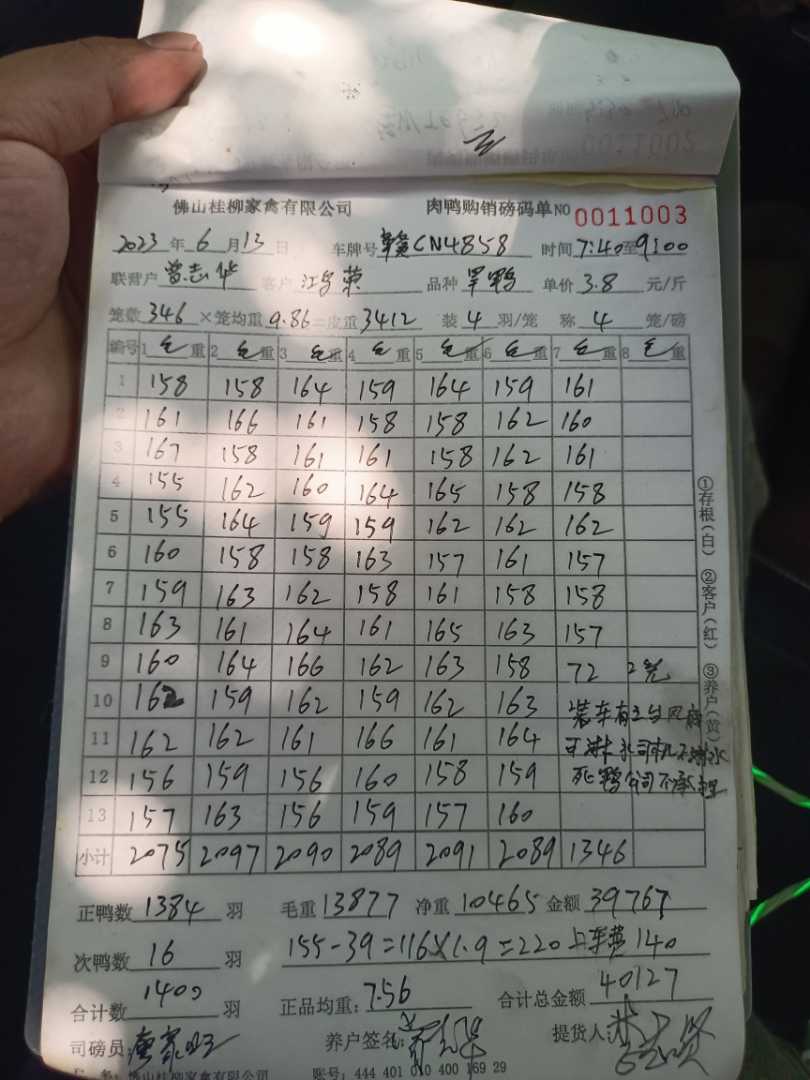 0011002
佛山桂柳家禽有限公司 肉鸭购销磅码单NO 0011003
2023年6月13日 车牌号 CN4858 时间7:40至9:00
联营户 曾志华 客户 江 荣 品种 单价 3.8 元/斤
笼数346×笼均重9.86=皮重3412 装4羽/笼 称4笼/磅
编号 1 毛重 2 毛重 3 毛重 4 毛重 5 毛重 6 毛重 7 毛重 8 毛重
1 158 158 164 159 164 159 161
2 161 166 161 158 158 162 160
3 167 158 161 161 158 162 161
4 155 162 160 164 165 158 158
5 155 164 159 159 162 162 162
6 160 158 158 163 157 161 157
7 159 163 162 158 161 158 158
8 163 161 164 161 165 163 157
9 160 164 166 162 163 158 72 2笼
10 162 159 162 159 162 163 装车有
11 162 162 161 166 161 164
12 156 159 156 160 158 159 死鸭公司不承担
13 157 163 156 159 157 160
小计 2075 2097 2090 2089 2091 2089 1346
①存根(白) ②客户(红) ③养户(黄)
正鸭数 1384 羽 毛重 13877 净重 10465 金额 39767
次鸭数 16 羽 155-39=116×1.9=220 上车费140
合计数 1400 羽 正品均重:7.56 合计总金额 40127
司磅员: 养户签名: 提货人:
佛山桂柳家禽有限公司 账号:444 401 010 400 169 29